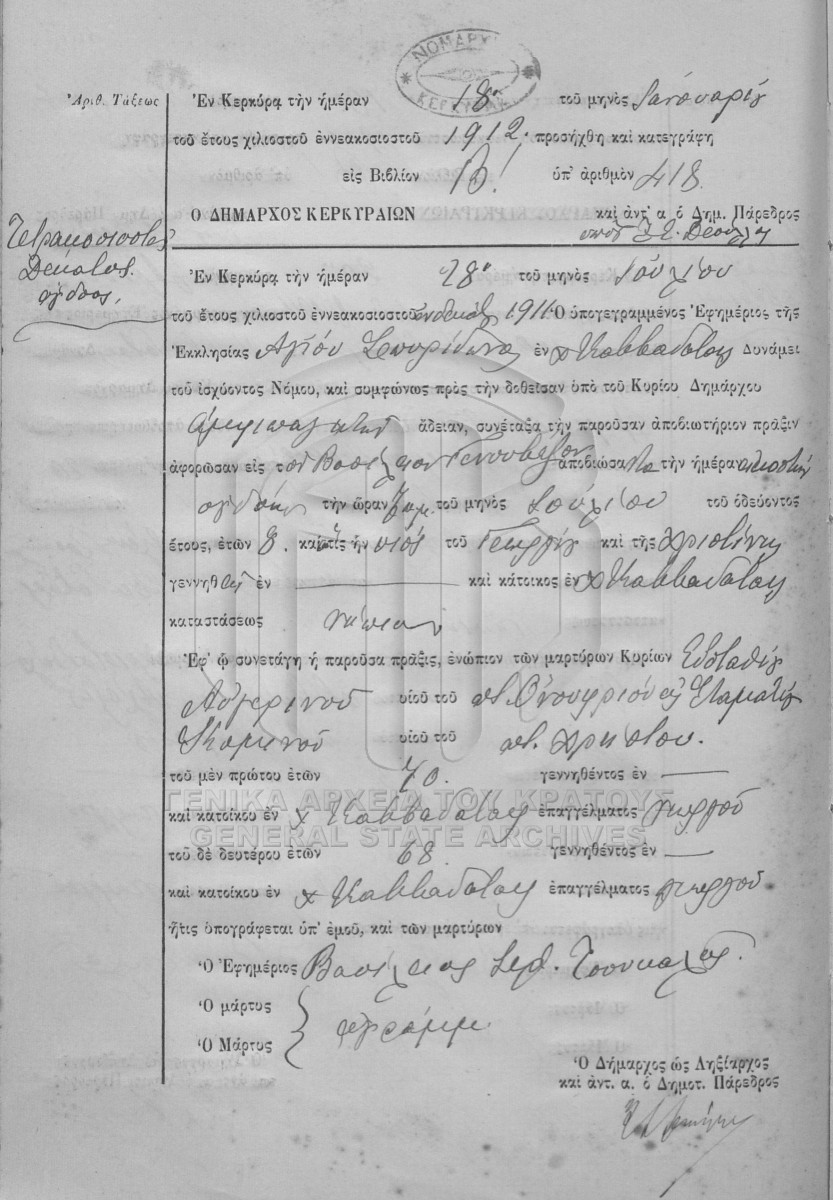 ΝΟΜΑΡΧΙ
ΚΕΡΚΥΡΑΣ
Ἀριθ. Τάξεως
Ἐν Κερκύρᾳ τὴν ἡμέραν 18ῃ τοῦ μηνὸς Ἰανουαρίου
τοῦ ἔτους χιλιοστοῦ ἐννεακοσιοστοῦ 1912. προσήχθη καὶ κατεγράφη
εἰς Βιβλίον Β! ὑπ' ἀριθμὸν 418.
Ο ΔΗΜΑΡΧΟΣ ΚΕΡΚΥΡΑΙΩΝ καὶ ἀντ' α ὁ Δημ. Πάρεδρος
Τετρακοσιοστὸς
Δέκατος
ὄγδοος.
Ἐν Κερκύρᾳ τὴν ἡμέραν 28ῃ τοῦ μηνὸς Ἰουλίου
τοῦ ἔτους χιλιοστοῦ ἐννεακοσιοστοῦ ἑνδεκάτου 1911 Ὁ ὑπογεγραμμένος Ἐφημέριος τῆς
Ἐκκλησίας Ἁγίου Σπυρίδωνος ἐν χ Καββαδάταις Δυνάμει
τοῦ ἰσχύοντος Νόμου, καὶ συμφώνως πρὸς τὴν δοθεῖσαν ὑπὸ τοῦ Κυρίου Δημάρχου
ἄδειαν, συνέταξα τὴν παροῦσαν ἀποβιωτήριον πρᾶξιν
ἀφορῶσαν εἰς τὸν Βασίλειον ἀποβιώσαντα τὴν ἡμέραν εἰκοστὴν
ὀγδόην τὴν ὥραν 7 π.μ. τοῦ μηνὸς Ἰουλίου τοῦ ὁδεύοντος
ἔτους, ἐτῶν 8. καὶ ὅστις ἦν υἱὸς τοῦ Γεωργίου καὶ τῆς Χριστίνης
γεννηθεὶς ἐν καὶ κάτοικος ἐν χ Καββαδάταις
καταστάσεως νήπιον
Ἐφ' ᾧ συνετάγη ἡ παροῦσα πρᾶξις, ἐνώπιον τῶν μαρτύρων Κυρίων Εὐσταθίου
Αὐγερινοῦ υἱοῦ τοῦ ποτ. Ὀνουφρίου καὶ Σταματίου
Κομηνοῦ υἱοῦ τοῦ ποτ. Χρήστου.
τοῦ μὲν πρώτου ἐτῶν 70. γεννηθέντος ἐν
καὶ κατοίκου ἐν χ Καββαδάταις ἐπαγγέλματος γεωργοῦ
ΓΕΝΙΚΑ ΑΡΧΕΙΑ ΤΟΥ ΚΡΑΤΟΥΣ
GENERAL STATE ARCHIVES
τοῦ δὲ δευτέρου ἐτῶν 68 γεννηθέντος ἐν
καὶ κατοίκου ἐν χ Καββαδάταις ἐπαγγέλματος γεωργοῦ
ἥτις ὑπογράφεται ὑπ' ἐμοῦ, καὶ τῶν μαρτύρων
Ὁ Ἐφημέριος Βασίλειος Ἱερ. Τσουκαλᾶς.
Ὁ μάρτυς
ἀγράμμ.
Ὁ Μάρτυς
Ὁ Δήμαρχος ὡς Ληξίαρχος
καὶ ἀντ. α. ὁ Δημοτ. Πάρεδρος